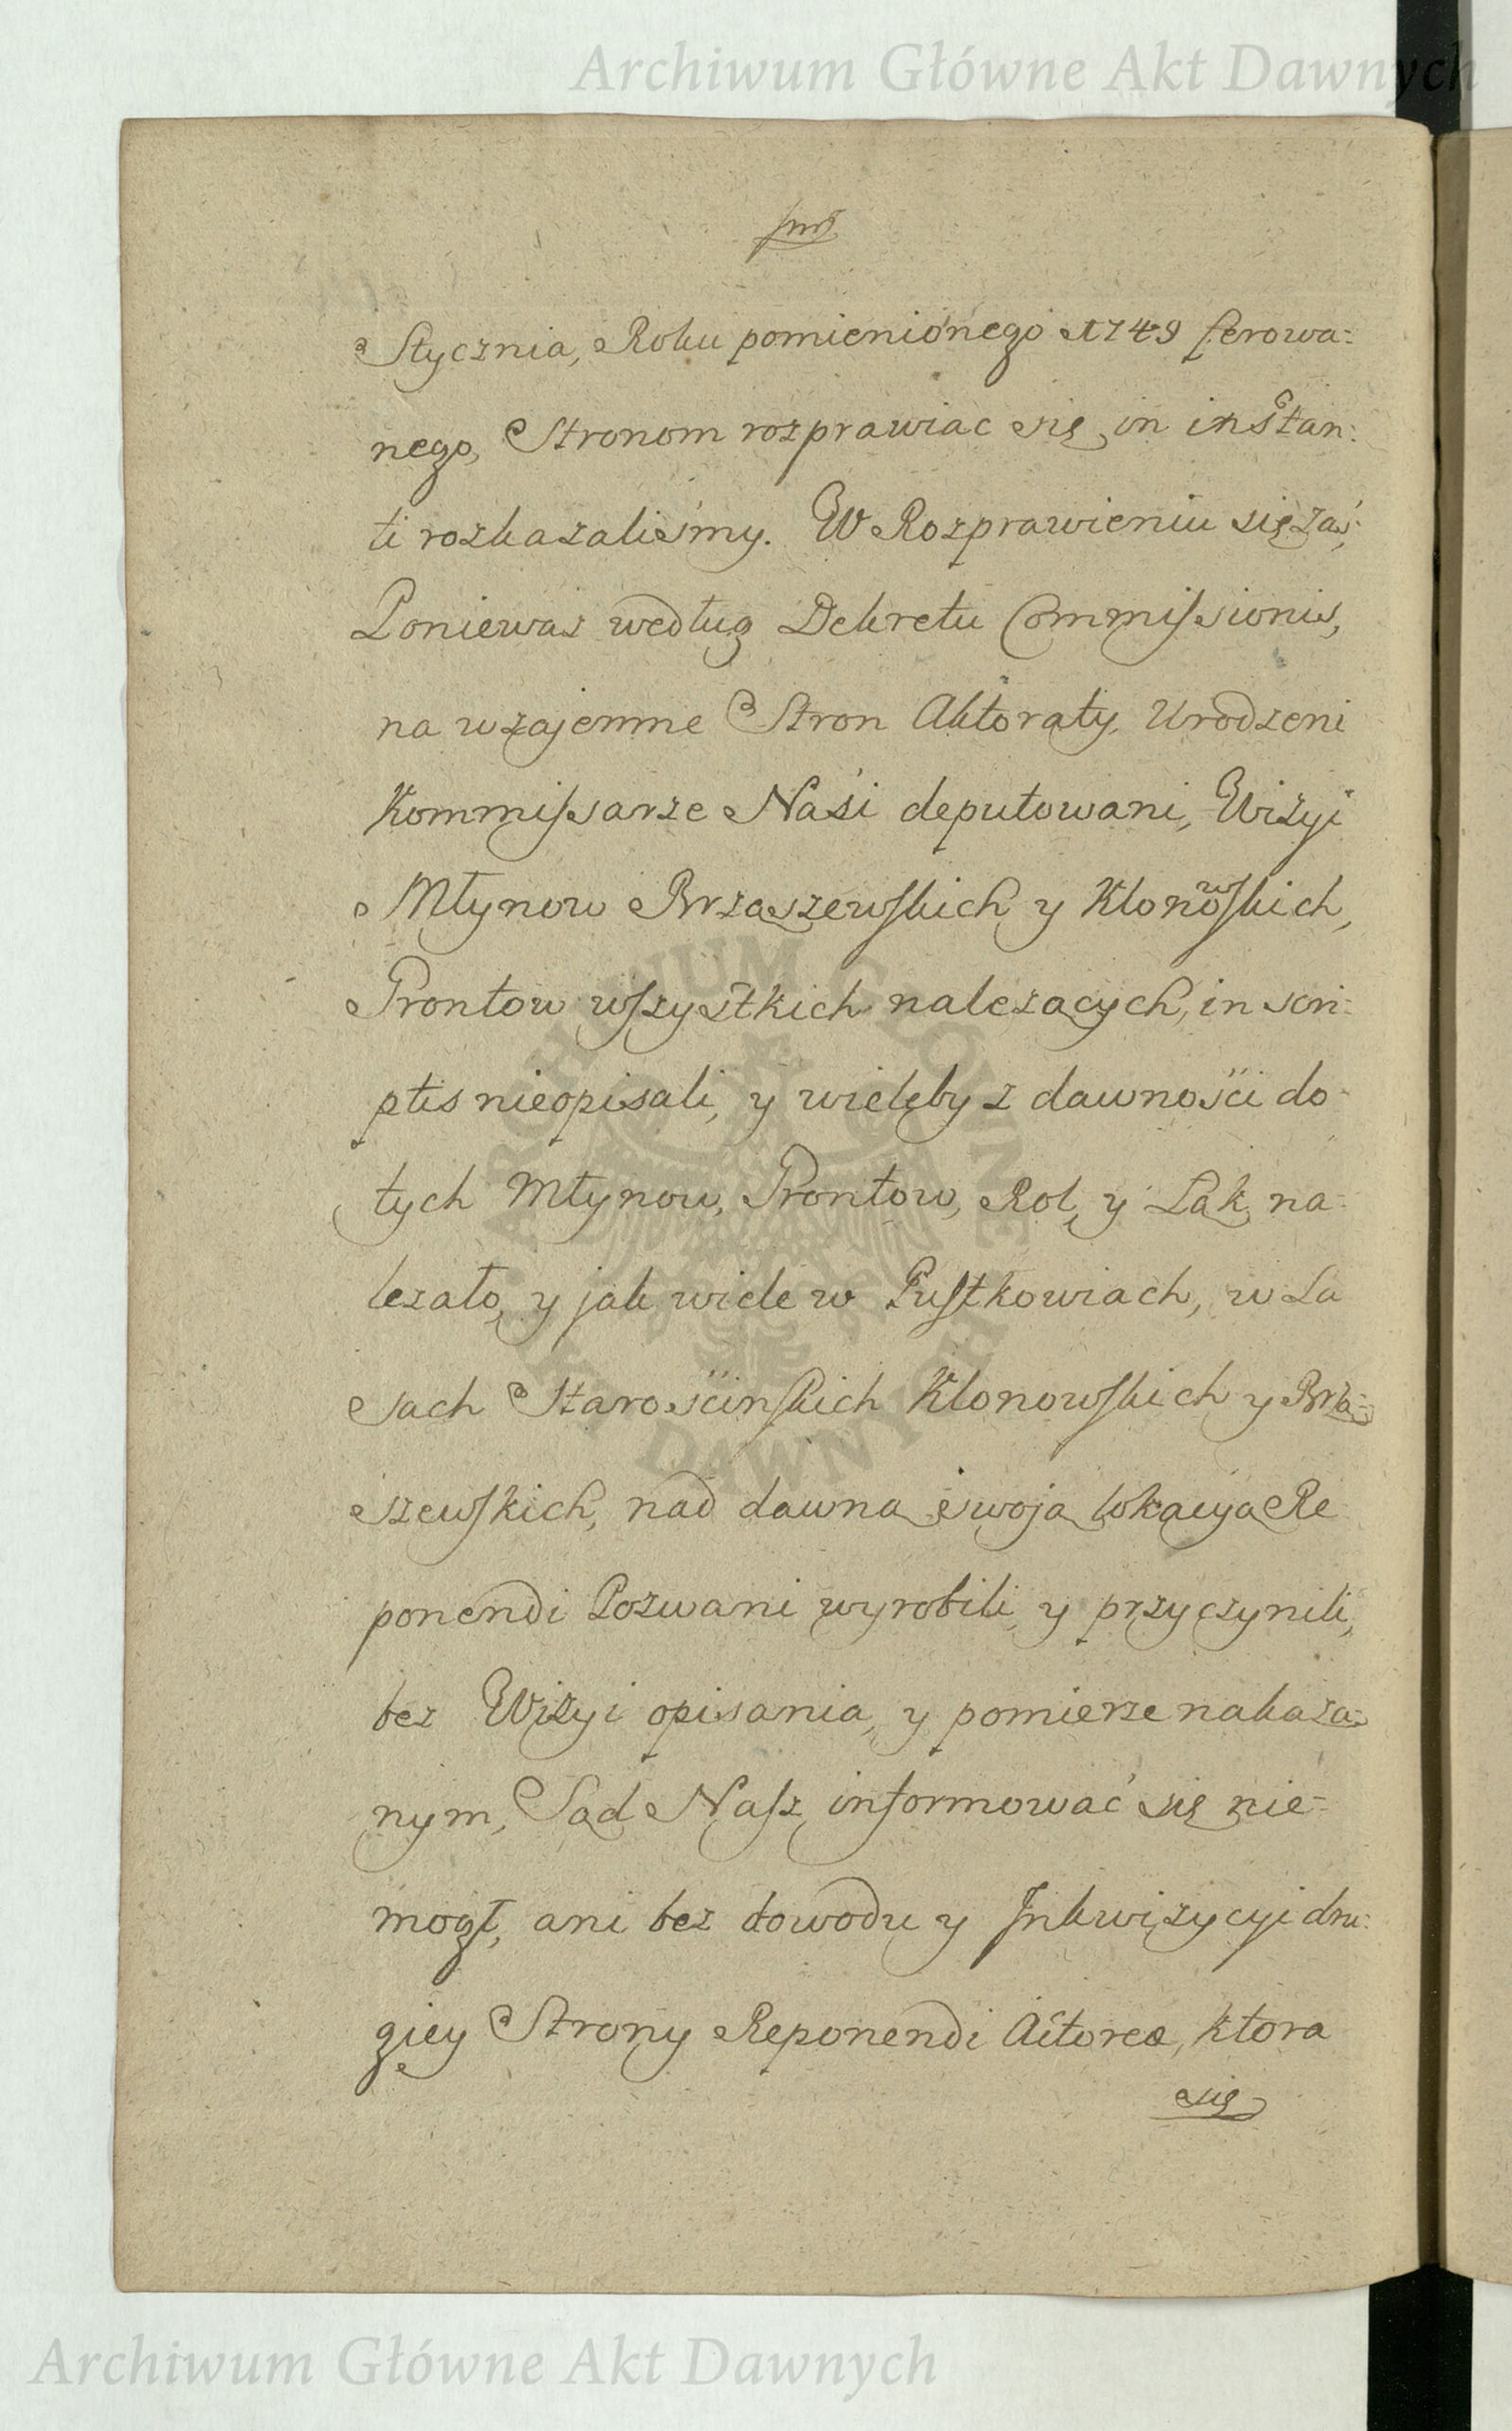 Archiwum Główne Akt Dawnych
Stycznia, Roku pomienionego 1749 ferowa:
nego, Stronom rozprawiac się in instan:
ti rozkazaliśmy. W Rozprawieniu się zaś,
Poniewaz według Dekretu Commissionis,
na wzajemne Stron Aktoraty, Urodzeni
Kommissarze Naśi deputowani, Wizyi
Młynow Brząszewskich y Klonowskich,
Grontow wszystkich należących, in scri:
ptis nieopisali, y wieleby z dawnosci do
tych Młynow, Grontow, Rol, y Łąk na:
lezało, y jak wiele w Pustkowiach, w La
sach Starościnskich Klonowskich y Brzą:
szewskich, nad dawną swoją lokacyą Re
ponendi Pozwani wyrobili, y przyczynili,
bez Wizyi opisania, y pomierze nakaza:
nym, Sąd Nasz informować się nie:
mogł, ani bez dowodu y Inkwizycyi dru:
giey Strony Reponendi Actorea, ktora
się
ARCHIWUM GŁÓWNE AKT DAWNYCH
Archiwum Główne Akt Dawnych